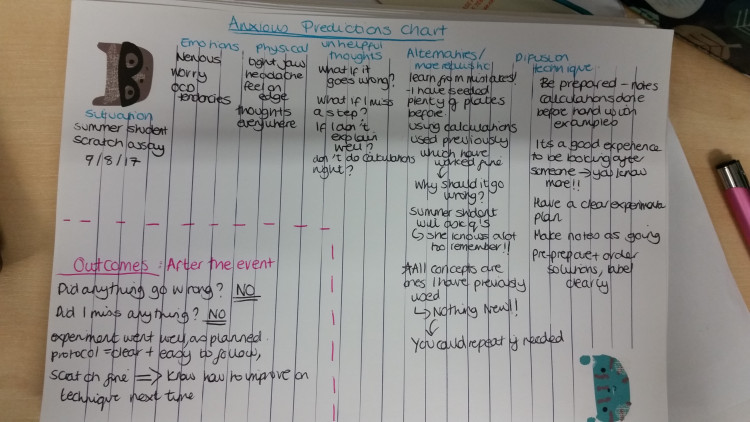 Anxious Predictions Chart
Situation
summer student
scratch assay
9/8/17
Emotions
Nervous
worry
OCD
tendencies
Physical
tight jaw
headache
feel on
edge
thoughts
everywhere
unhelpful
thoughts
what if it
goes wrong?
What if I miss
a step?
If I don't
explain
well?
don't do calculations
right?
Alternatives/
more realistic
learn from mistakes!
-I have seeded
plenty of plates
before.
using calculations
used previously
which have
worked fine
Why should it go
wrong?
Summer student
will ask q's
↳ She knows a lot
to remember!!
*All concepts are
ones I have previously
used
↳ Nothing New!!
You could repeat if needed
Difusion
technique
Be prepared - notes
calculations done
before hand with
examples
Its a good experience
to be looking after
someone → you know
more!!
Have a clear experimental
plan
Make notes as going
Pre-prepare + order
solutions, label
clearly
Outcomes: After the event
Did anything go wrong? NO
Did I miss anything? NO
experiment went well, as planned.
protocol = clear + easy to follow,
scratch fine => know how to improve on
technique next time